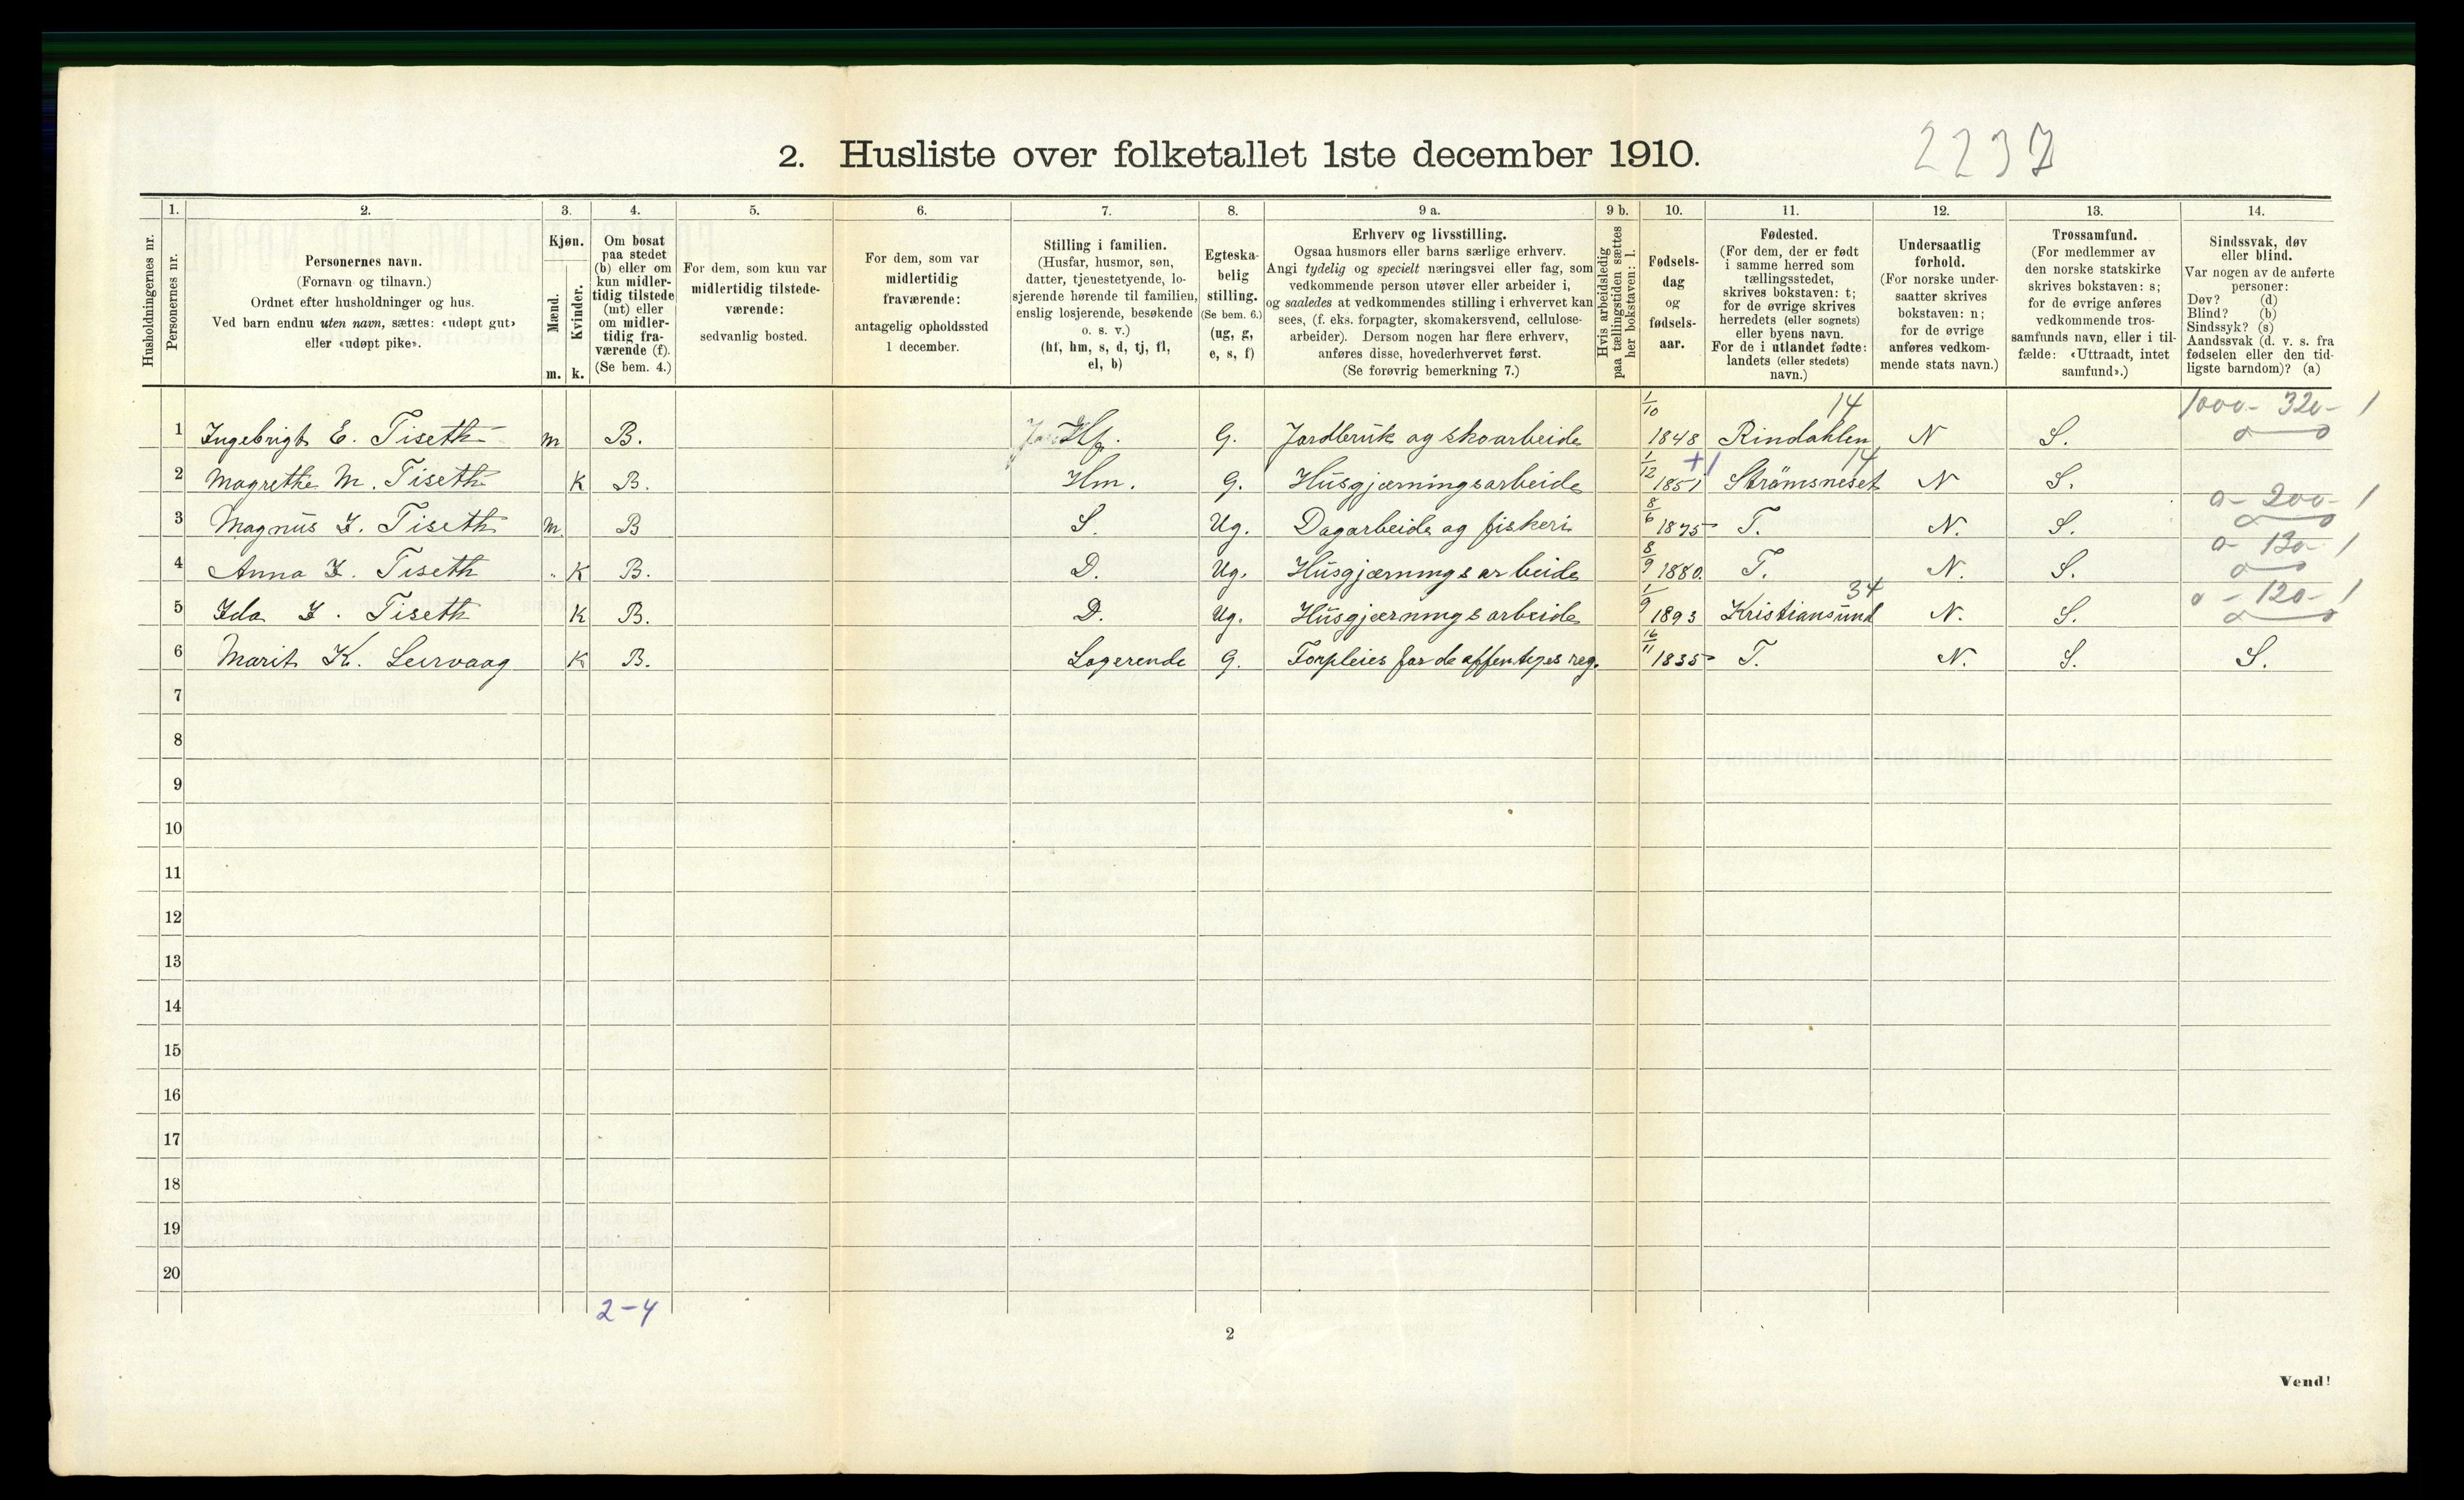 2. Husliste over folketallet 1ste december 1910.
2237
1. 2. 3. 4. 5. 6. 7. 8. 9 a. 9 b. 10. 11. 12. 13. 14.
Husholdningernes nr.
Personernes nr.
Personernes navn.
(Fornavn og tilnavn.)
Ordnet efter husholdninger og hus.
Ved barn endnu uten navn, sættes: «udøpt gut»
eller «udøpt pike».
Kjøn.
Mænd.
Kvinder.
m. k.
Om bosat
paa stedet
(b) eller om
kun midler-
tidig tilstede
(mt) eller
om midler-
tidig fra-
værende (f).
(Se bem. 4.)
For dem, som kun var
midlertidig tilstede-
værende:
sedvanlig bosted.
For dem, som var
midlertidig
fraværende:
antagelig opholdssted
1 december.
Stilling i familien.
(Husfar, husmor, søn,
datter, tjenestetyende, lo-
sjerende hørende til familien,
enslig losjerende, besøkende
o. s. v.)
(hf, hm, s, d, tj, fl,
el, b)
Egteska-
belig
stilling.
(Se bem. 6.)
(ug, g,
e, s, f)
Erhverv og livsstilling.
Ogsaa husmors eller barns særlige erhverv.
Angi tydelig og specielt næringsvei eller fag, som
vedkommende person utøver eller arbeider i,
og saaledes at vedkommendes stilling i erhvervet kan
sees, (f. eks. forpagter, skomakersvend, cellulose-
arbeider). Dersom nogen har flere erhverv,
anføres disse, hovederhvervet først.
(Se forøvrig bemerkning 7.)
Hvis arbeidsledig
paa tællingstiden sættes
her bokstaven: l.
Fødsels-
dag
og
fødsels-
aar.
Fødested.
(For dem, der er født
i samme herred som
tællingsstedet,
skrives bokstaven: t;
for de øvrige skrives
herredets (eller sognets)
eller byens navn.
For de i utlandet fødte:
landets (eller stedets)
navn.)
Undersaatlig
forhold.
(For norske under-
saatter skrives
bokstaven: n;
for de øvrige
anføres vedkom-
mende stats navn.)
Trossamfund.
(For medlemmer av
den norske statskirke
skrives bokstaven: s;
for de øvrige anføres
vedkommende tros-
samfunds navn, eller i til-
fælde: «Uttraadt, intet
samfund».)
Sindssvak, døv
eller blind.
Var nogen av de anførte
personer:
Døv? (d)
Blind? (b)
Sindssyk? (s)
Aandssvak (d. v. s. fra
fødselen eller den tid-
ligste barndom)? (a)
14 1000- 320- 1
1 Ingebrigt E. Tiseth m B. Hf. G. Jordbruk og skoarbeide 1/10 1848 Rindahlen N S.
+1 14
2 Magrethe M. Tiseth K B. Hm. G. Husgjærningsarbeide 1/12 1851 Strömsneset N S.
0- 200- 1
3 Magnus I. Tiseth m. B S. Ug. Dagarbeide og fiskeri 8/6 1875 T. N. S.
0- 130- 1
4 Anna I. Tiseth K B. D. Ug. Husgjærningsarbeide 8/9 1880. T. N. S.
34 0 - 120- 1
5 Ida I. Tiseth K B. D. Ug. Husgjærningsarbeide 1/9 1893 Kristiansund N. S.
6 Marit K. Leirvaag K B. Logerende G. Forpleies for de offentliges reg. 16/11 1835 T. N. S. S.
7
8
9
10
11
12
13
14
15
16
17
18
19
20
2-4
2
Vend!